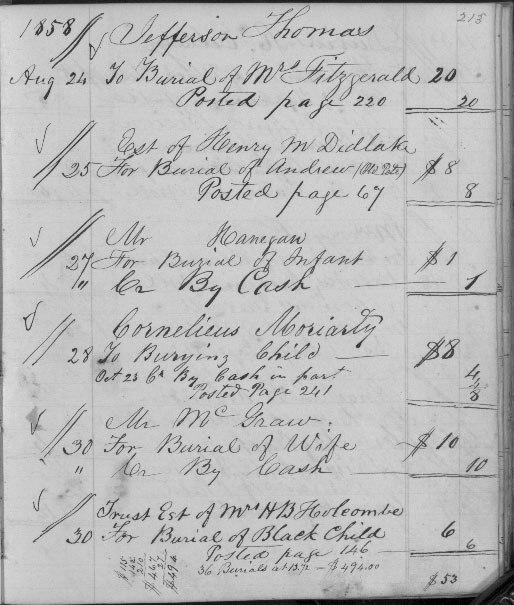 215
1858 Jefferson Thomas
Aug 24 To Burial of Mrs Fitzgerald 20
Posted page 220 20
Est of Henry M Didlake
25 For Burial of Andrew $8
Posted page 67 8
Mr Hanegan
27 For Burial of Infant $1
" Cr By Cash 1
Cornelieus Moriarty
28 To Burying Child $8
Oct 23 Cr By Cash in part 4
Posted Page 241 4
8
Mr McGraw.
30 For Burial of Wife $10
" Cr By Cash 10
Trust Est of Mrs H B Holcombe
30 For Burial of Black Child 6
Posted page 146 6
36 Burials at 13.72 - $494.00
$53
$467
27
$494